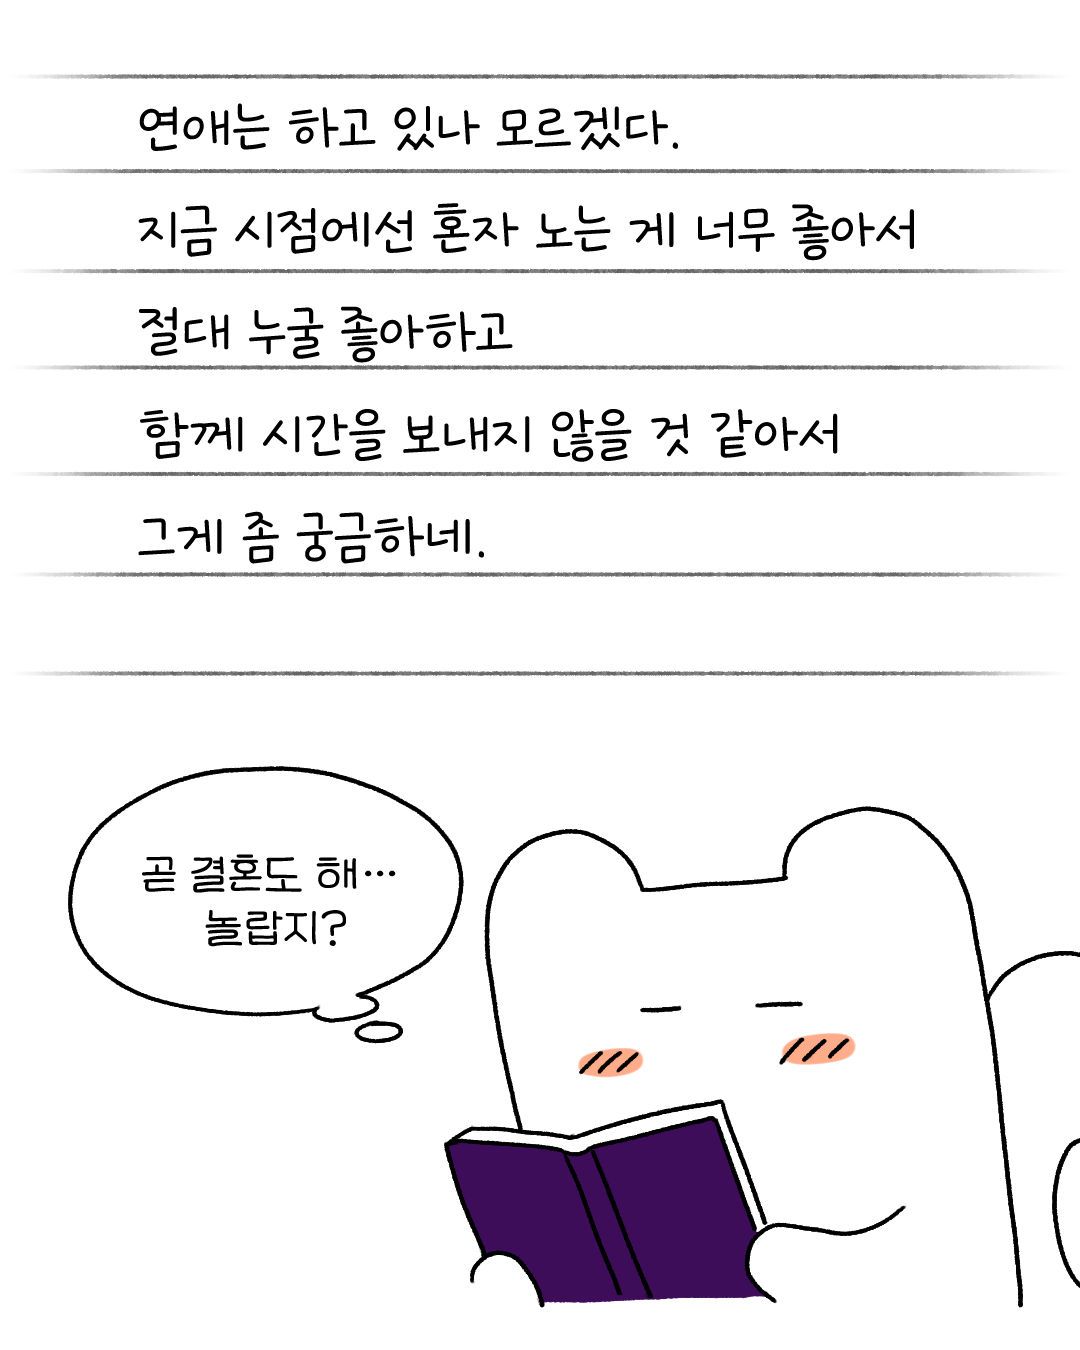 연애는 하고 있나 모르겠다.
지금 시점에선 혼자 노는 게 너무 좋아서
절대 누굴 좋아하고
함께 시간을 보내지 않을 것 같아서
그게 좀 궁금하네.
곧 결혼도 해…
놀랍지?